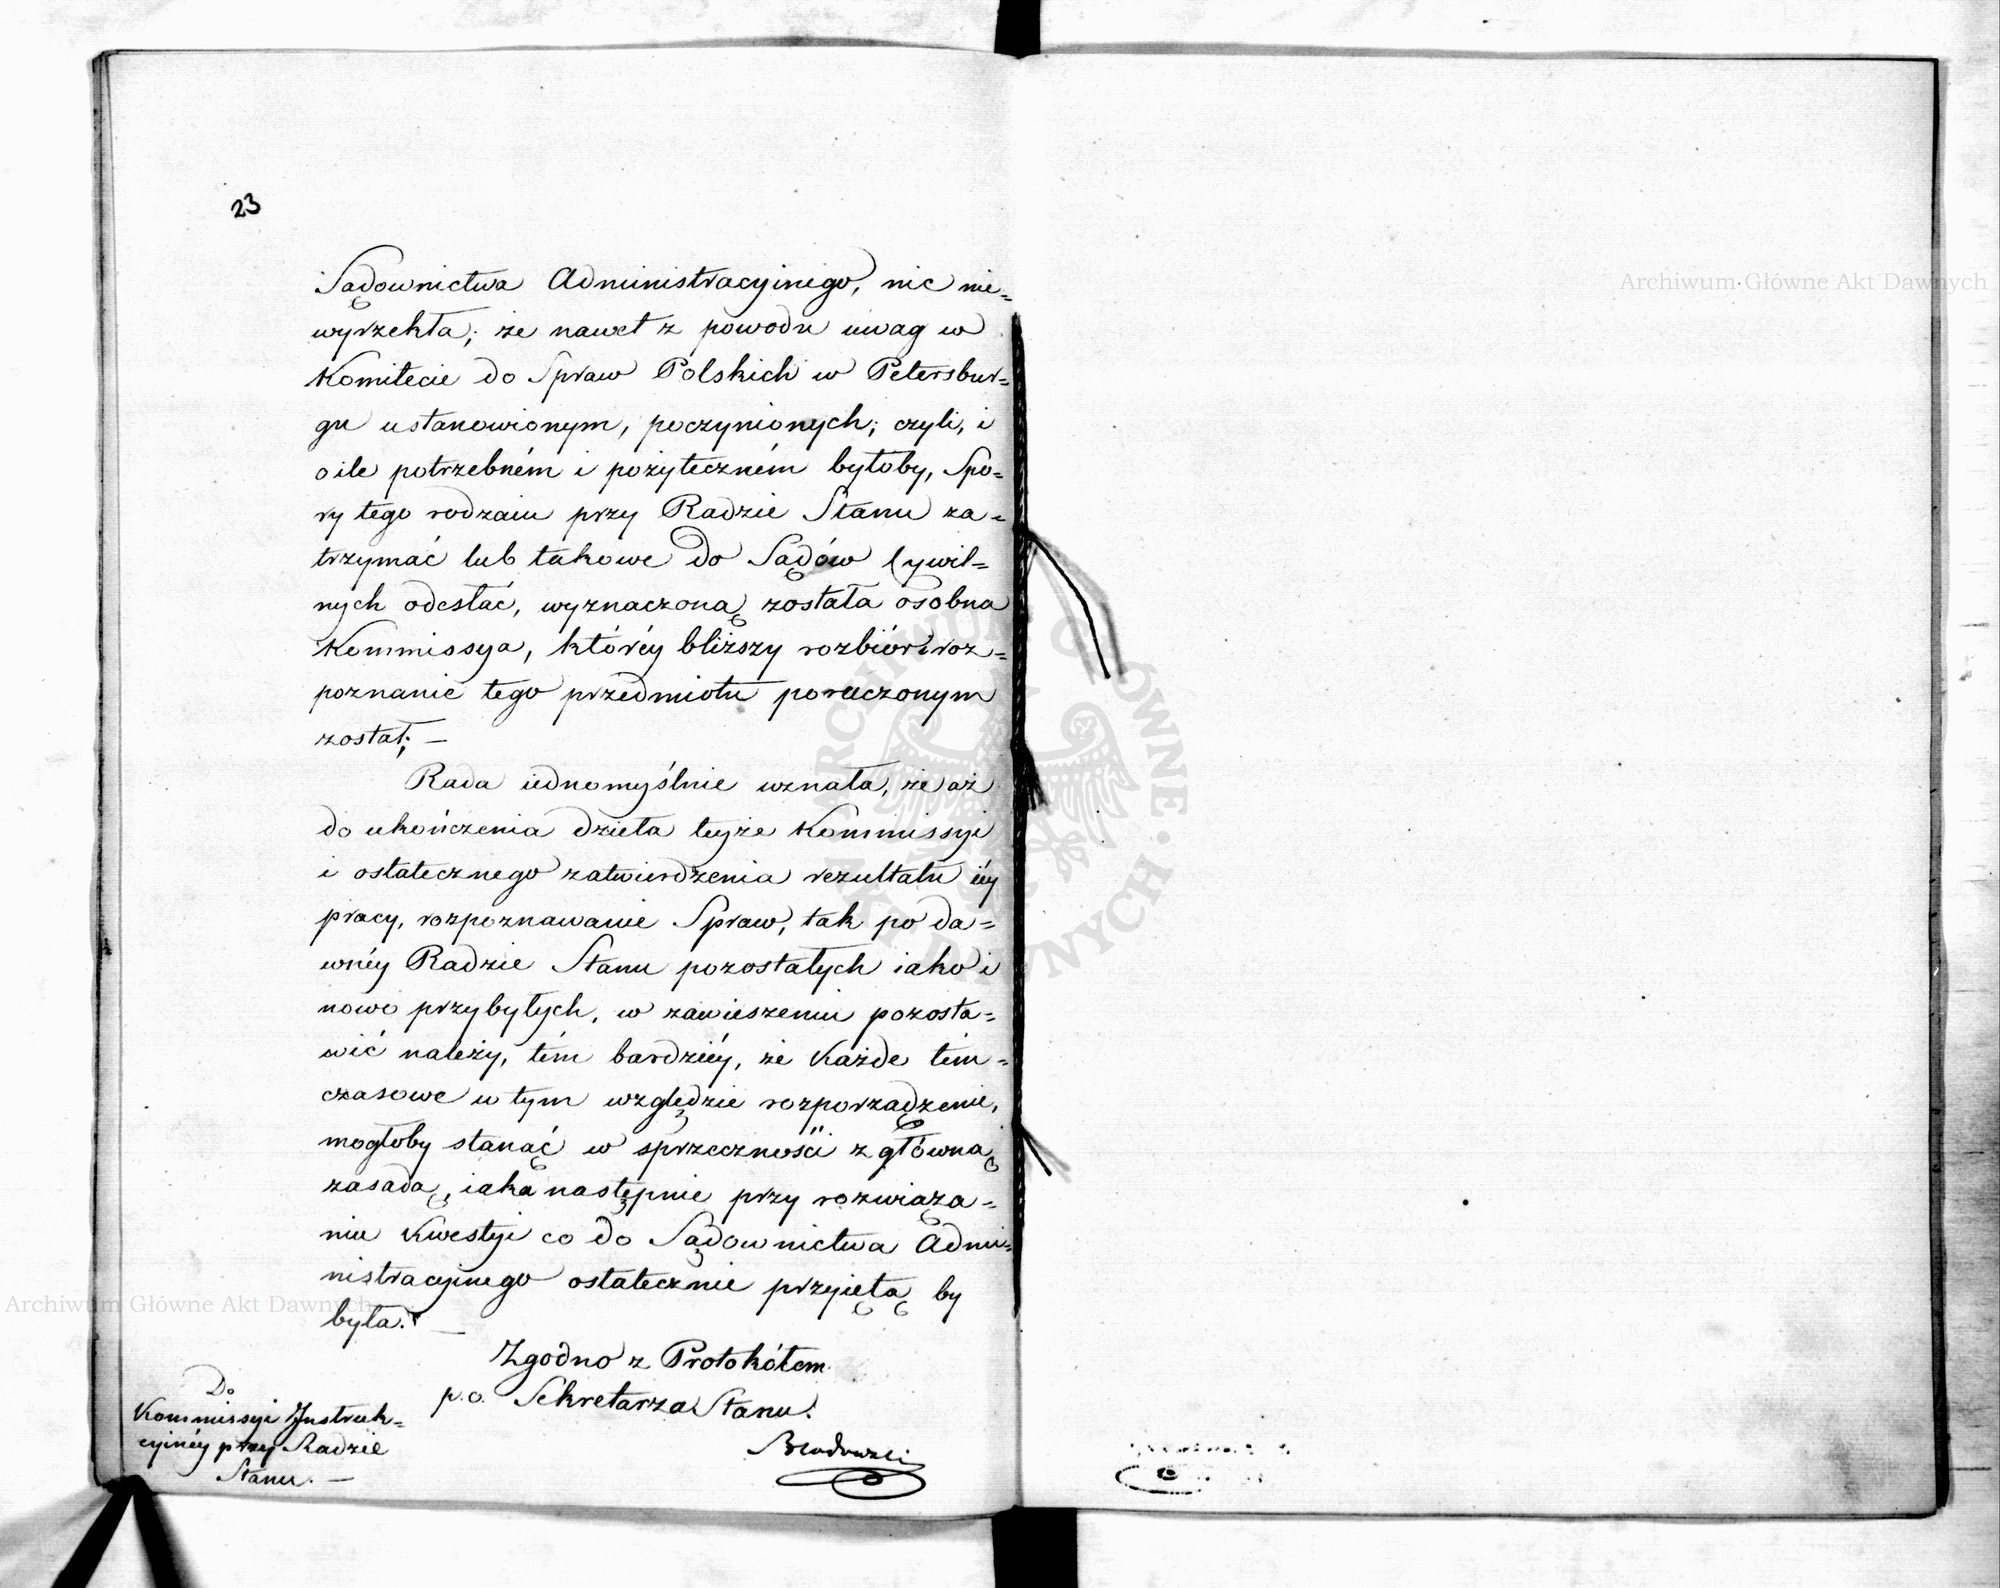 23
Sądownictwa Administracyinego, nic nie=
wyrzekła; że nawet z powodu uwag w
Komitecie do Spraw Polskich w Petersbur=
gu ustanowionym, poczynionych; czyli, i
oile potrzebném i pożyteczném byłoby, Spo=
ry tego rodzaiu przy Radzie Stanu za=
trzymać lub takowe do Sądów Cywil=
nych odesłać, wyznaczoną została osobna
Kommissya, któréy bliższy rozbiór i roz=
poznanie tego przedmiotu poruczonym
został; —
Rada iednomyślnie uznała, że aż
do ukończenia dzieła teyże Kommissyi
i ostatecznego zatwierdzenia rezultatu iéy
pracy, rozpoznawanie Spraw, tak po da=
wnéy Radzie Stanu pozostałych iako i
nowo przybyłych, w zawieszeniu pozosta=
wić należy, tém bardziéy, że każde tém=
czasowe w tym względzie rozporządzenie,
mogłoby stanąć w sprzeczności z główną
zasadą, iaka następnie przy rozwiąza=
niu kwestyi co do Sądownictwa Admi=
nistracyinego ostatecznie przyiętą by
była. —
Zgodno z Protokółem
p.o. Sekretarza Stanu.
Brodowski
Do
Kommissyi Instruk=
cyinéy przy Radzie
Stanu. —
Archiwum Główne Akt Dawnych
Archiwum Główne Akt Dawnych
ARCHIWUM GŁÓWNE AKT DAWNYCH